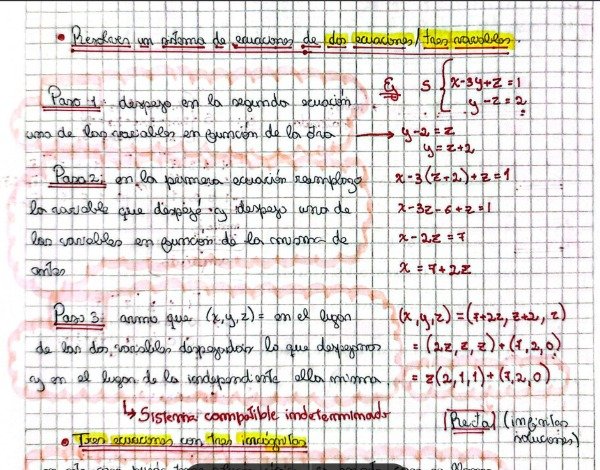 • Resolver un sistema de ecuaciones de dos ecuaciones/tres variables.
Paso 1: despejo en la segunda ecuación
una de las variables en función de la otra
Ej S { x-3y+z=1
y-z=2
→ y-2=z
y=z+2
Paso 2: en la primera ecuación reemplazo
la variable que despejé y despejo una de
las variables en función de la misma de
antes
x-3(z+2)+z=1
x-3z-6+z=1
x-2z=7
x=7+2z
Paso 3: armo que (x,y,z)= en el lugar
de las dos variables despejadas lo que despejamos
y en el lugar de la independiente ella misma.
(x,y,z)=(7+2z, z+2, z)
=(2z, z, z)+(7,2,0)
=z(2,1,1)+(7,2,0)
↳ Sistema compatible indeterminado
[Recta] (infinitas
soluciones)
• Tres ecuaciones con tres incógnitas